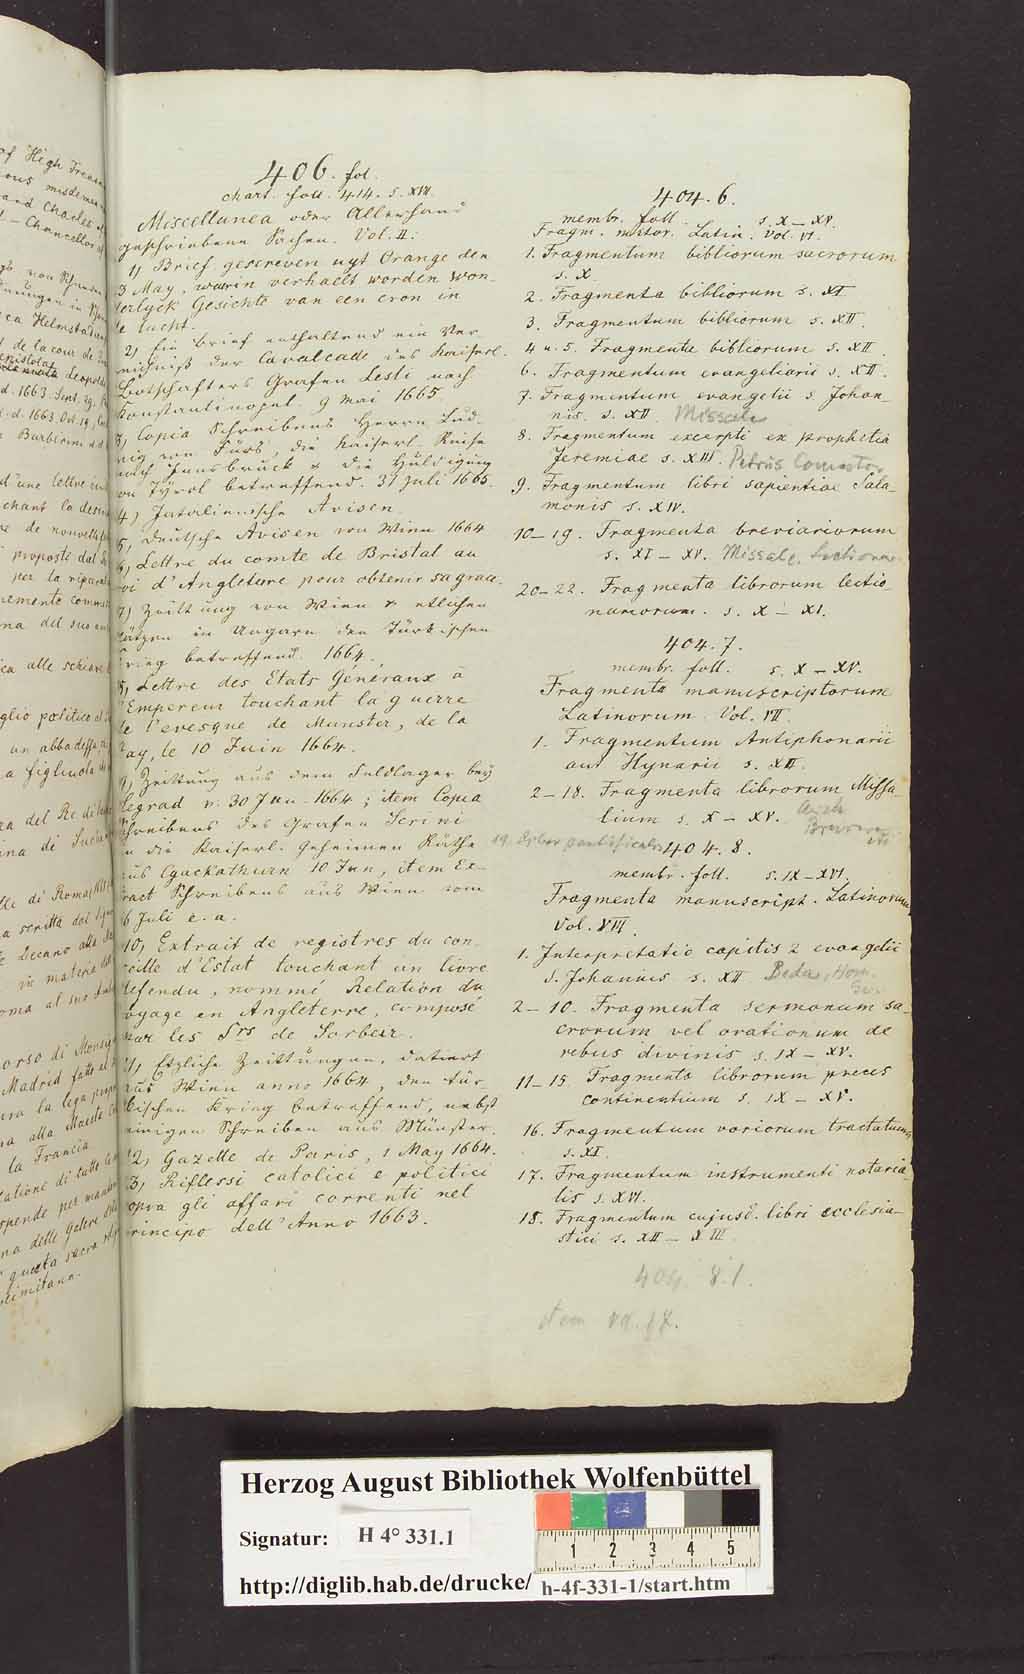 of High Treason
ous misdemea
and Charles
- Chancellor of
ca Helmstad
de la cour de
Leopold
d. 1663. Sept. 29.
d. 1663 Oct. 19
Barberini
d'une lettre
chant la
de nouvelle
proposte dal
per la
na del suo
ca alle schiave
glio politico
un abbadessa
a figliuola
ra del Re di
ina di
lle di Roma
a scritta dal
Decano alla
in materia
oma al suo
orso di Monsig
Madrid fatto al
ra la lega
na alla Maestà
la Francia
tatione di tutte le
spende per
na delle Galere
questa sacra
limitana.
406. fol.
chart. foll. 414. s. XVII.
Miscellanea oder Allerhand
geschriebene Sachen. Vol. II:
1) Brief gescreven uyt Orange den
3 May, warin verhaelt worden won-
derlyck Gesichte van een cron in
de lucht.
2) Ein Brief enthaltend ein Ver
zeichniß der Cavalcade des Kaiserl.
Botschafters Grafen Lesli nach
Konstantinopel. 9 Mai 1665
3) Copia Schreibens Herrn Lud-
wig von Fürs, die Kaiserl. Reise
nach Innsbruck & die Huldigung
von Tyrol betreffend. 31 Juli 1665.
4) Italienische Avisen.
5) Deutsche Avisen von Wien 1664
6) Lettre du comte de Bristal au
roi d'Angleture pour obtenir sa grace.
7) Zeittung von Wien & etlichen
Plätzen in Ungarn den Türkischen
Krieg betreffend. 1664.
8) Lettre des Etats Généraux à
l'Empereur touchant la guerre
de l'evesque de Munster, de la
Hay, le 10 Juin 1664.
9) Zeittung aus dem Feldlager bey
Legrad v. 30 Jun. 1664; item Copia
Schreibens des Grafen Serini
an die Kaiserl. geheimen Räthe
aus Cgackathurn 10 Jun, item Ex-
tract Schreibens aus Wien vom
6 Juli e. a.
10) Extrait de registres du con-
seille d'Estat touchant un livre
defendu, nommé Relation du
voyage en Angleterre, composé
par les Srs de Sorbeir.
11) Etzliche Zeittungen, datiert
aus Wien anno 1664, den tür-
kischen Krieg betreffend, nebst
einigen Schreiben aus Münster.
12) Gazette de Paris, 1 May 1664.
13) Riflessi catolici e politici
sopra gli affari correnti nel
principo dell'Anno 1663.
404. 6.
membr. foll. s. X – XV.
Fragm. mstor. Latin. Vol. VI.
1. Fragmentum bibliorum sacrorum
s. X
2. Fragmenta bibliorum s. XI
3. Fragmentum bibliorum s. XII
4 u. 5. Fragmenta bibliorum s. XII
6. Fragmentum evangeliarii s. XII.
7. Fragmentum evangelii s Johan-
nis. s. XII Missale
8. Fragmentum excerpti ex prophetia
Jeremiae s. XIII. Petrus Comestor
9. Fragmentum libri sapientiae Sala-
monis s. XIV.
10–19. Fragmenta breviariorum
s. XI – XV. Missale, Lectionar
20–22. Fragmenta librorum lectio-
nariorum. s. X – XI.
404. 7.
membr. foll. s. X – XV.
Fragmenta manuscriptorum
Latinorum. Vol. VII.
1. Fragmentum Antiphonarii
aut Hynarii s. XII.
2–18. Fragmenta librorum Missa-
lium s. X – XV. auch
Breviari
19. Liber pontificalis
404. 8.
membr. foll. s. IX – XVI.
Fragmenta manuscript. Latinorum
Vol. VIII.
1. Interpretatio capitis 2 evangelii
S. Johannis s. XII Beda, Hom.
2–10. Fragmenta sermonum sa-
crorum vel orationum de
rebus divinis s. IX – XV.
11–15. Fragmenta librorum preces
continentium s. IX – XV.
16. Fragmentum variorum tractatuum
s. XI.
17. Fragmentum instrumenti notaria-
lis s. XVI.
18. Fragmentum cujusd. libri ecclesia-
stici s. XII – XIII
404. 8.1.
Herzog August Bibliothek Wolfenbüttel
Signatur: H 4° 331.1
http://diglib.hab.de/drucke/ h-4f-331-1/start.htm
1 2 3 4 5